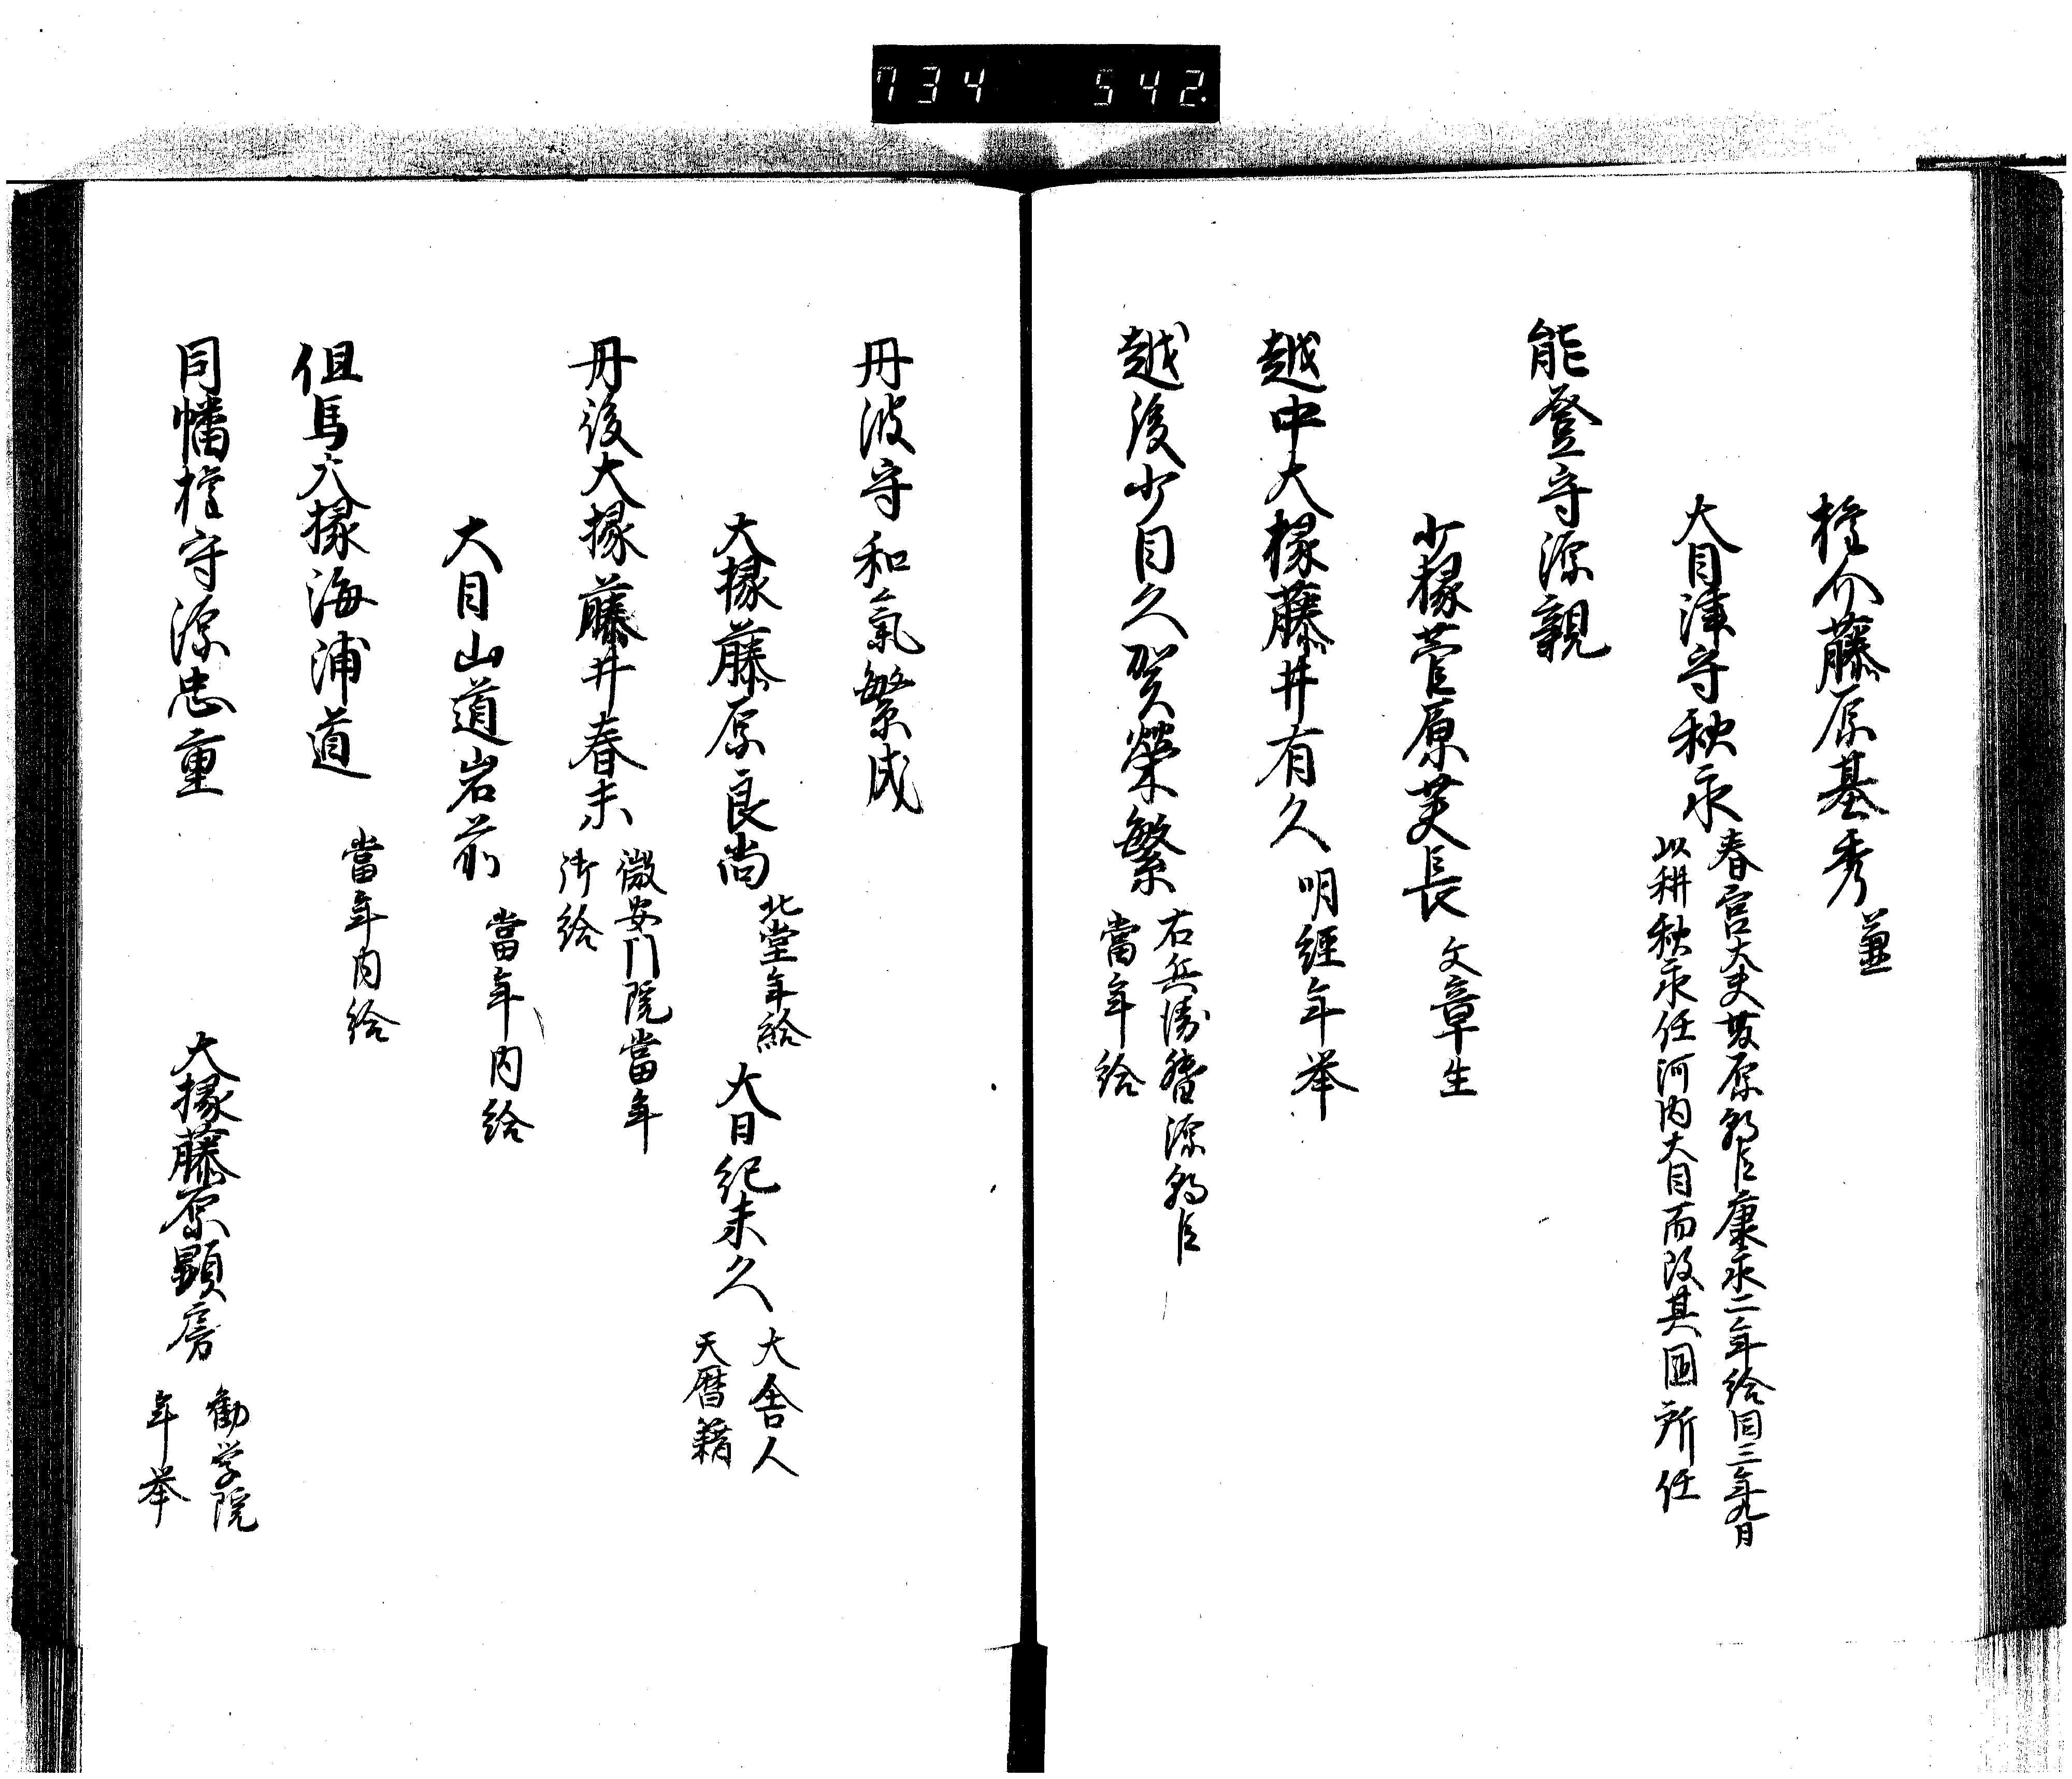 734 542.
権介藤原基秀 兼
大目津守秋永
春宮大夫藤原朝臣康永二年給同三年九月
以耕秋永任河内大目而改其国所任
能登守源親
少掾菅原茂長 文章生
越中大掾藤井有久 明経年挙
越後少目久賀栄繁
右兵衛督源朝臣
當年給
丹波守和氣繁成
大掾藤原良尚 北堂年給 大目紀末久
大舎人
天暦籍
丹後大掾藤井春末
徽安門院當年
御給
大目山道岩前 當年内給
但馬大掾海浦道 當年内給
同幡権守源忠重 大掾藤原顕房
勧学院
年挙